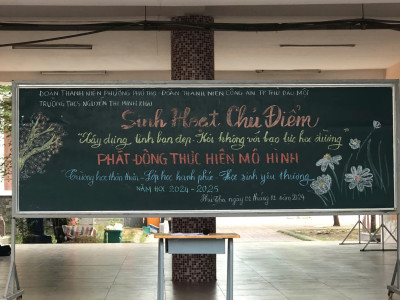 ĐOÀN THANH NIÊN PHƯỜNG PHÚ THỌ - ĐOÀN THANH NIÊN CÔNG AN TP THỦ DẦU MỘT
TRƯỜNG THCS NGUYỄN THỊ MINH KHAI
Sinh Hoạt Chủ Điểm
"Xây dựng tình bạn đẹp - Nói không với bạo lực học đường"
PHÁT ĐỘNG THỰC HIỆN MÔ HÌNH
"Trường học thân thiện - Lớp học hạnh phúc - Học sinh yêu thương"
NĂM HỌC 2024-2025
Phú Thọ, ngày 02 tháng 12 năm 2024